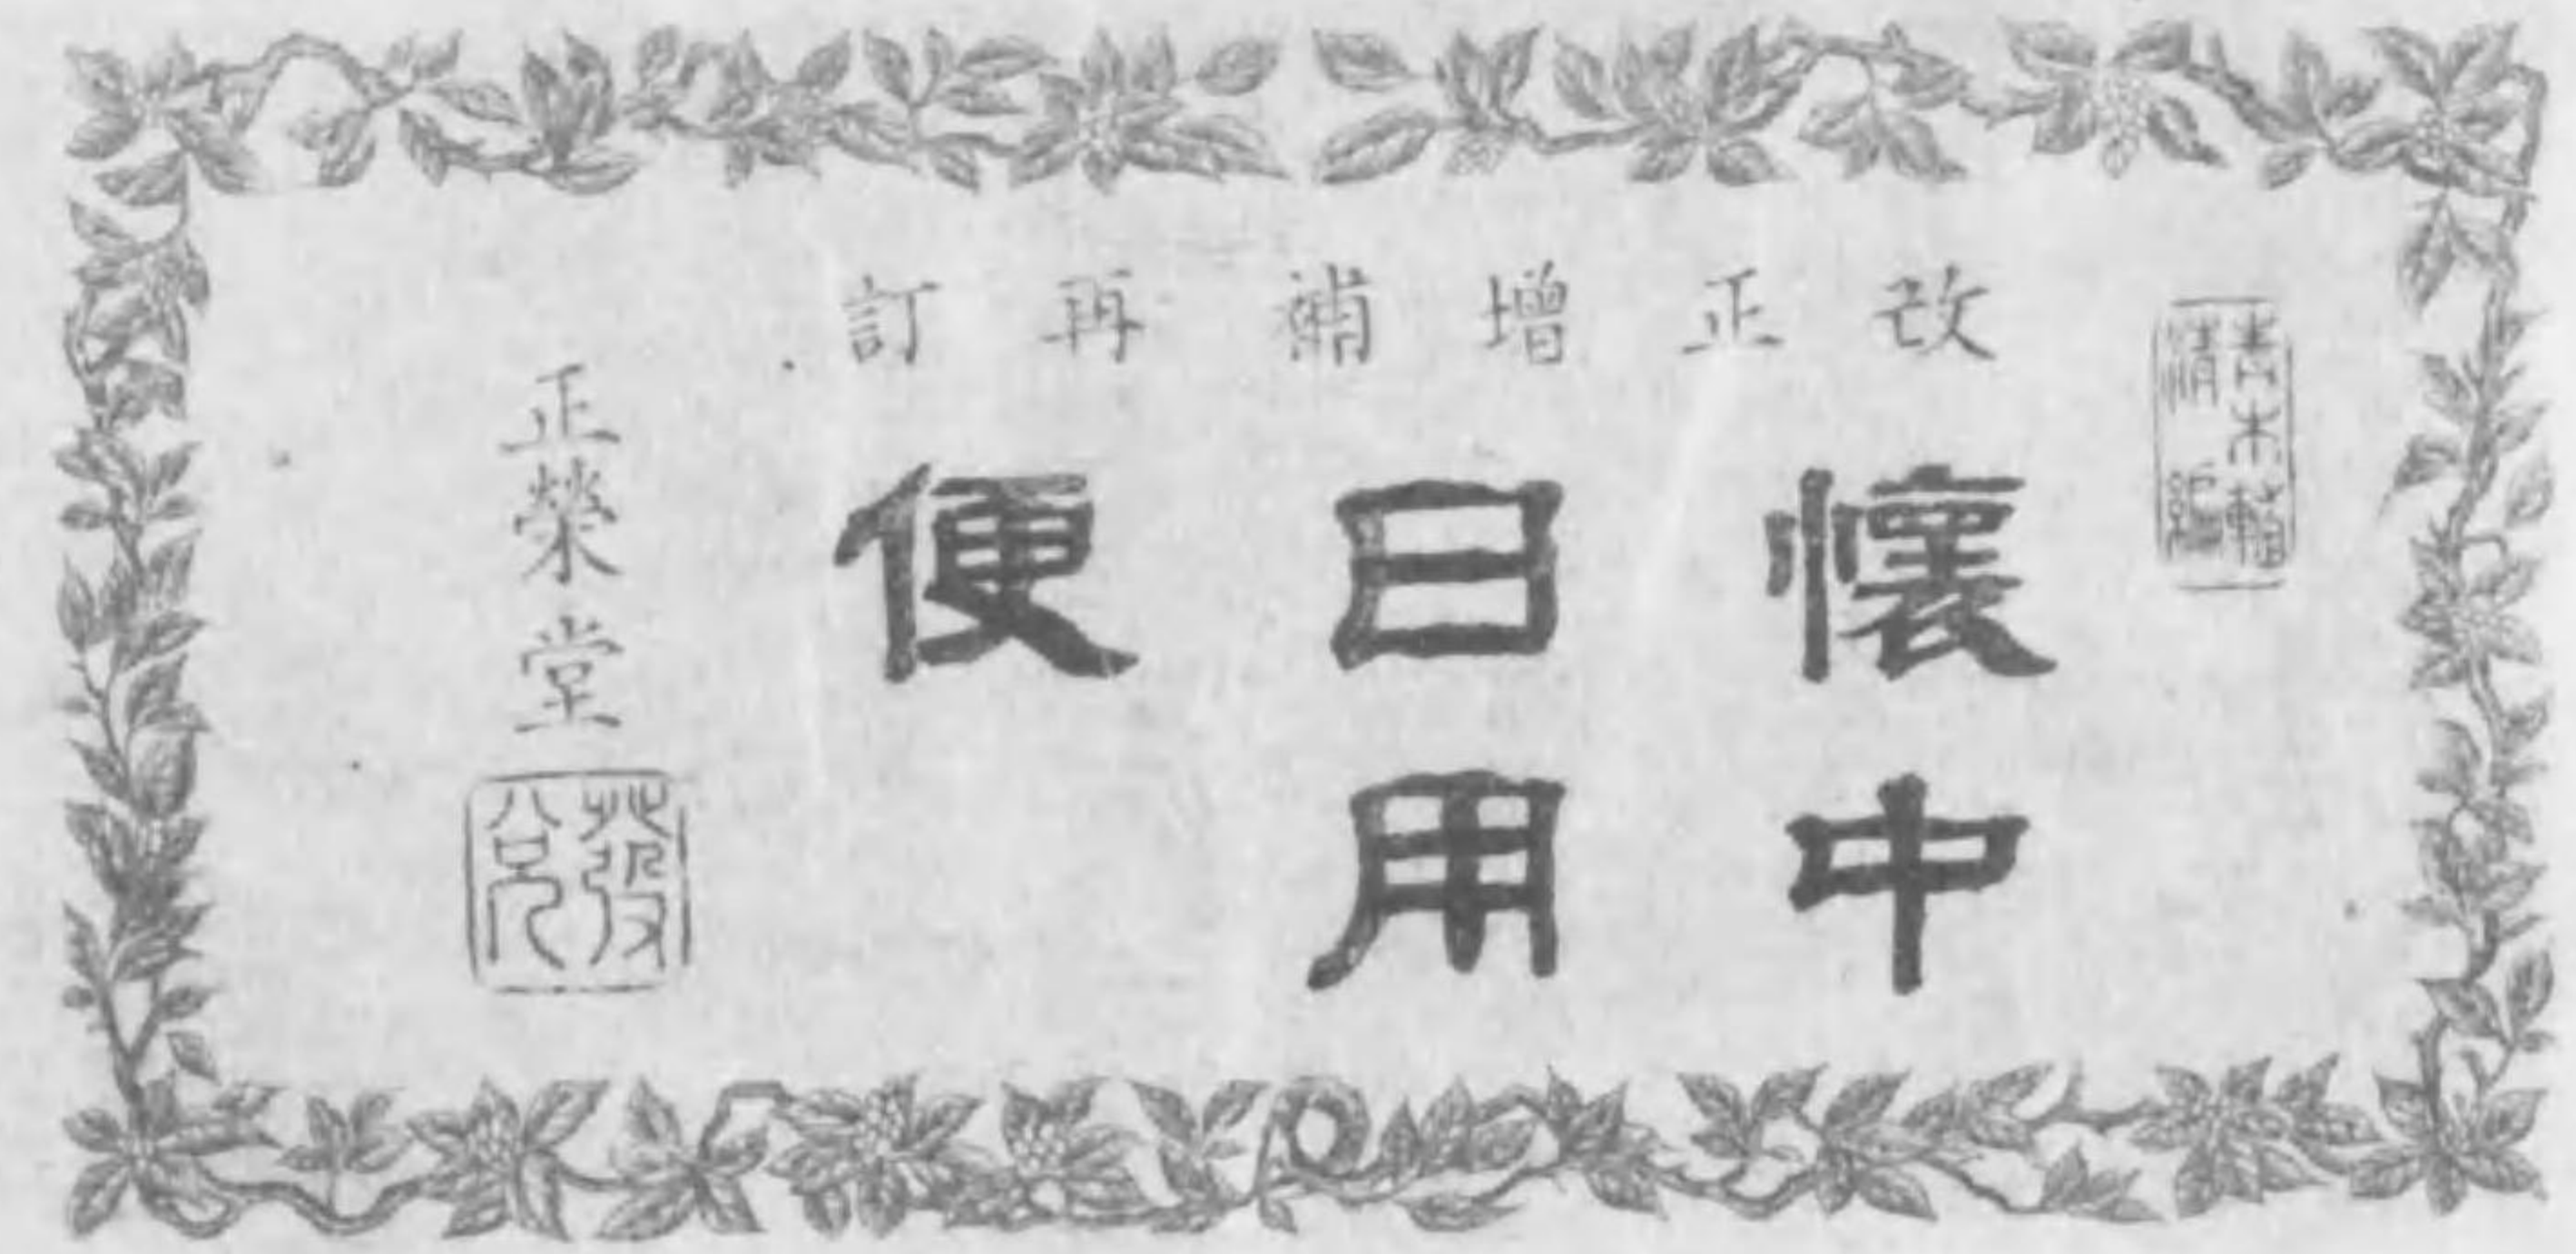 青木輔
清編
改正增補再訂
懷中
日用
便
正榮堂
發
兌